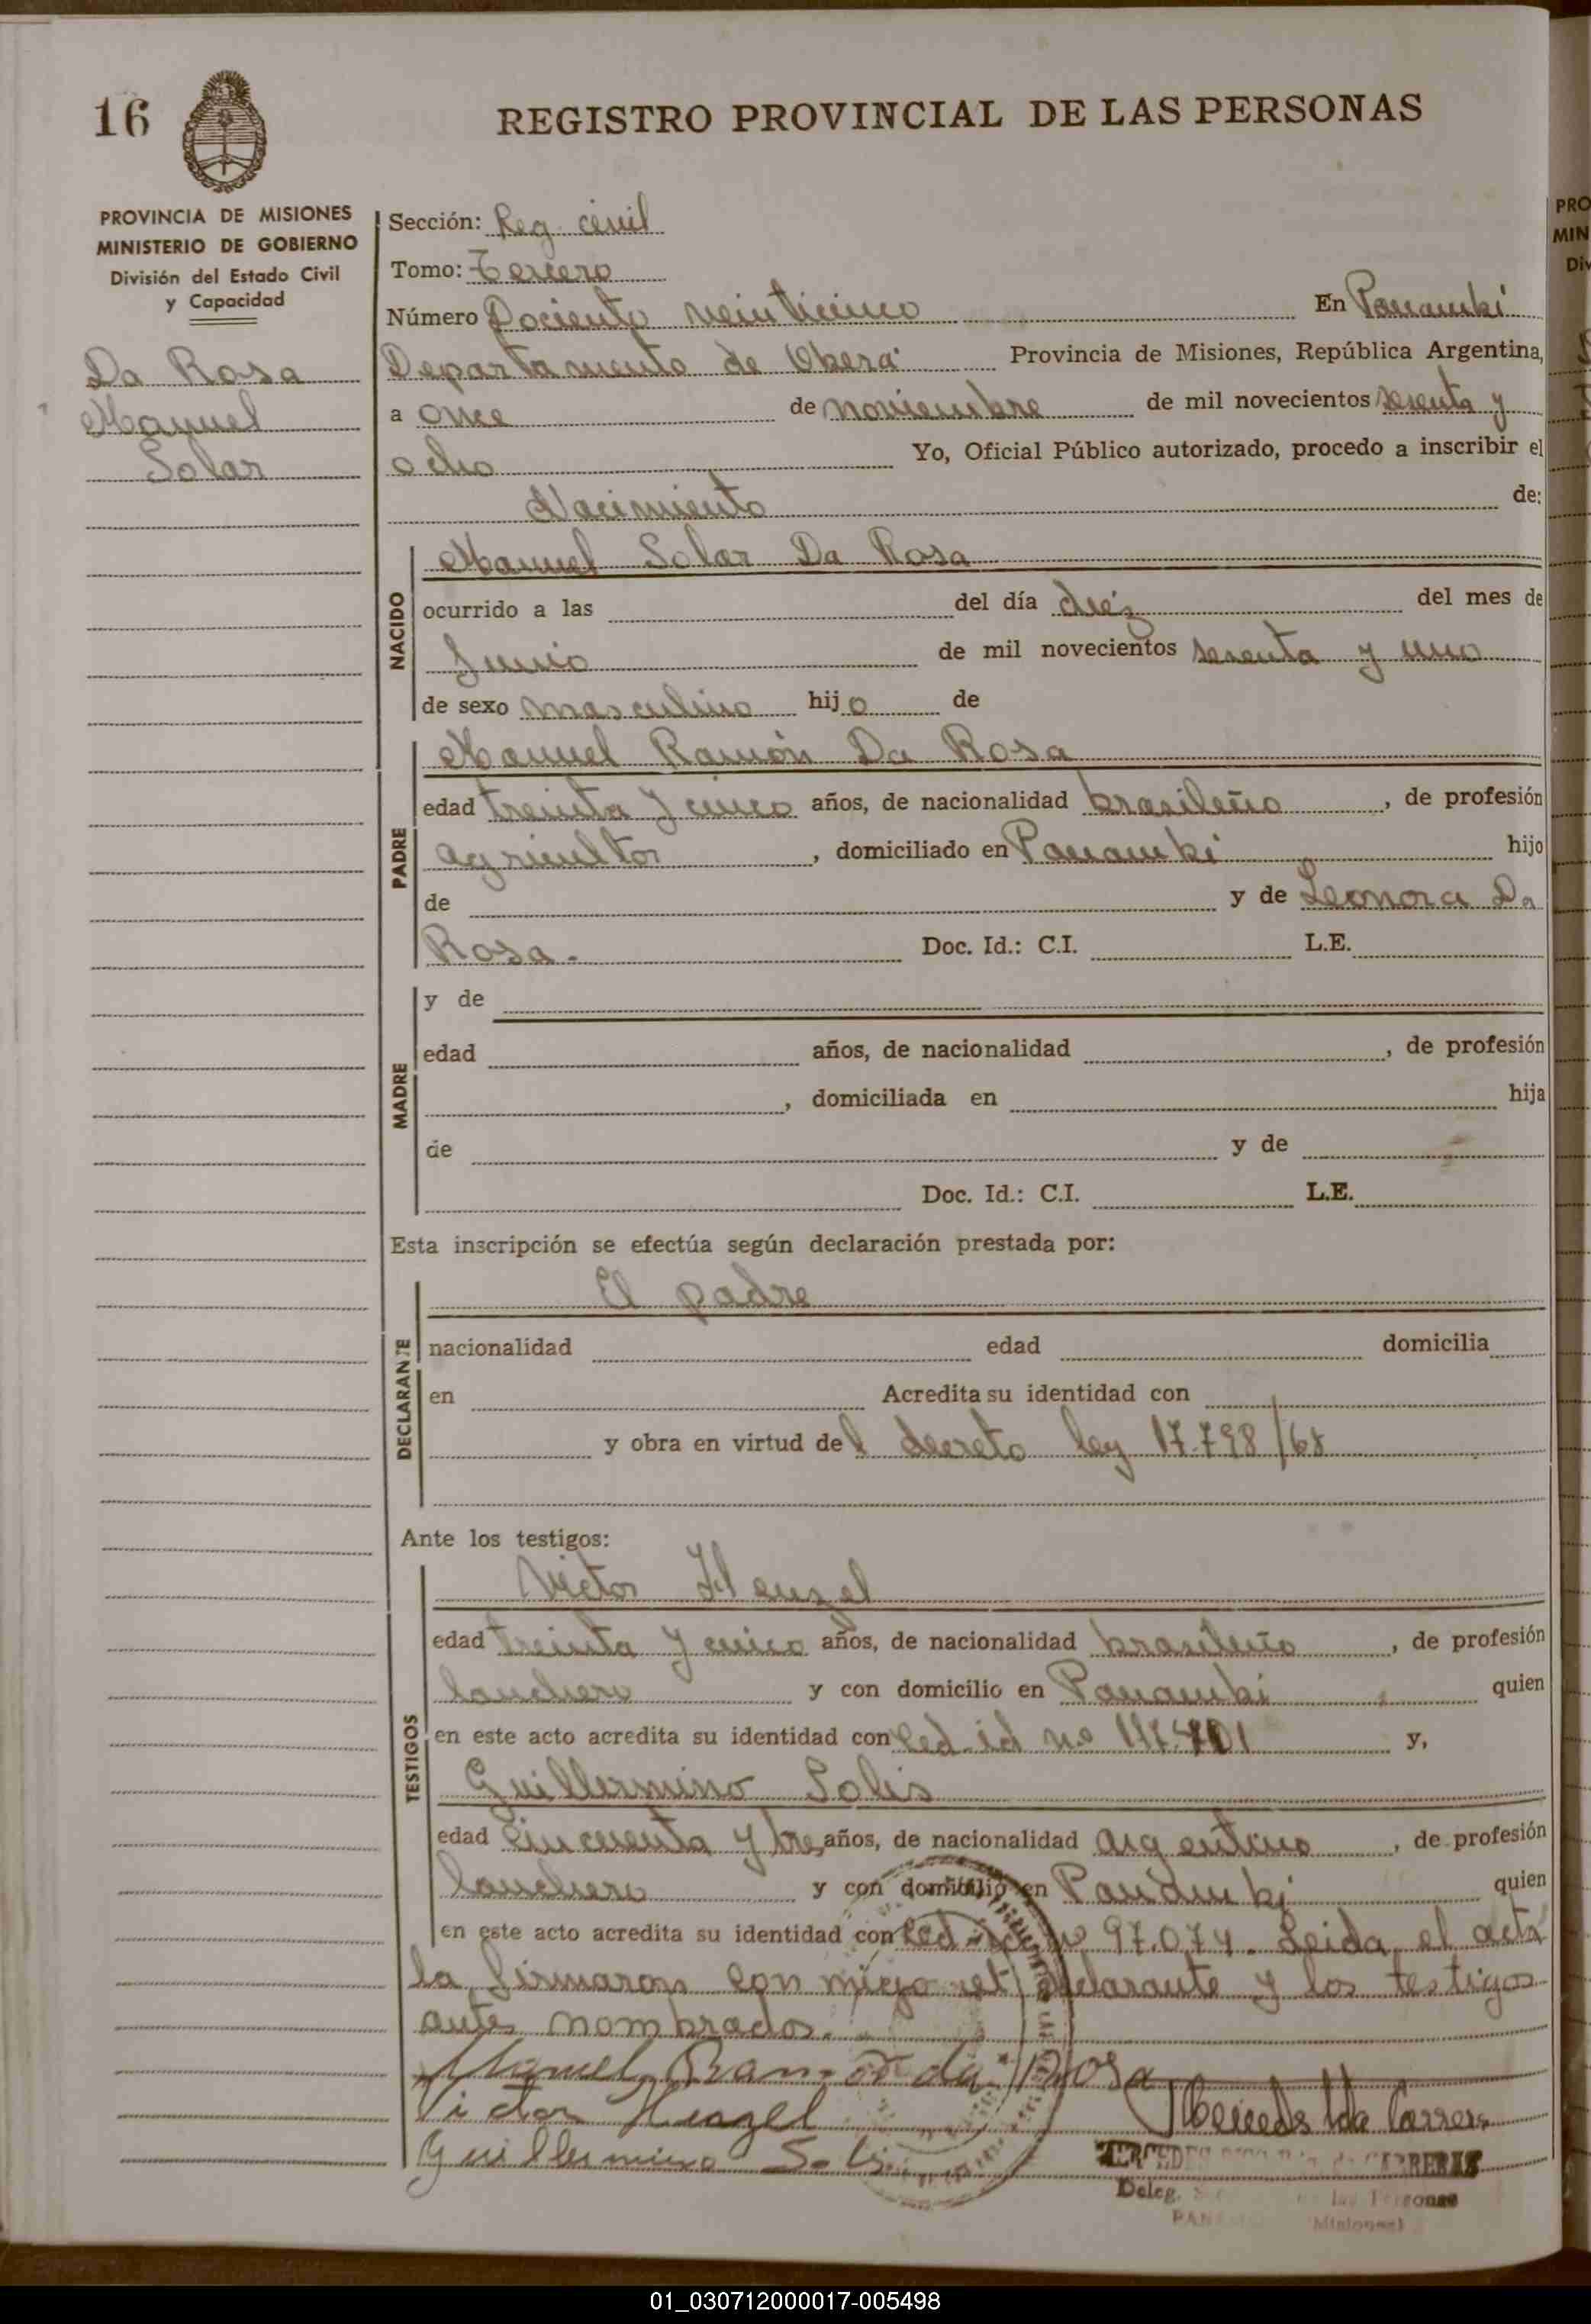 16
REGISTRO PROVINCIAL DE LAS PERSONAS
PROVINCIA DE MISIONES
MINISTERIO DE GOBIERNO
División del Estado Civil
y Capacidad
Da Rosa
Manuel
Solar
Sección: Reg. civil
Tomo: Tercero
Número Dociento veinticinco En Panambí
Departamento de Oberá Provincia de Misiones, República Argentina,
a once de noviembre de mil novecientos sesenta y
ocho Yo, Oficial Público autorizado, procedo a inscribir el
Nacimiento de:
NACIDO
Manuel Solar Da Rosa
ocurrido a las del día diéz del mes de
Junio de mil novecientos sesenta y uno
de sexo masculino hijo de
PADRE
Manuel Ramón Da Rosa
edad treinta y cinco años, de nacionalidad brasileño, de profesión
agricultor, domiciliado en Panambí hijo
de y de Leonora Da
Rosa. Doc. Id.: C.I. L.E.
MADRE
y de
edad años, de nacionalidad , de profesión
, domiciliada en hija
de y de
Doc. Id.: C.I. L.E.
Esta inscripción se efectúa según declaración prestada por:
DECLARANTE
El padre
nacionalidad edad domicilia
en Acredita su identidad con
y obra en virtud del decreto ley 17.798/68
Ante los testigos:
TESTIGOS
Victor Henzel
edad treinta y cinco años, de nacionalidad brasileño, de profesión
lanchero y con domicilio en Panambí quien
en este acto acredita su identidad con Ced. id no y,
Guillermino Solis
edad Cincuenta y tres años, de nacionalidad argentino, de profesión
lanchero y con domicilio en Panambí quien
en este acto acredita su identidad con Ced. 97.074. Leida el acta
la firmaron con migo el declarante y los testigos
antes nombrados.
Manuel Ramon da Rosa
Victor Henzel
Guillermino Solis
MERCEDES CARRERAS
Deleg. de las Personas
Misiones
PRO
MIN
Div
01_030712000017-005498